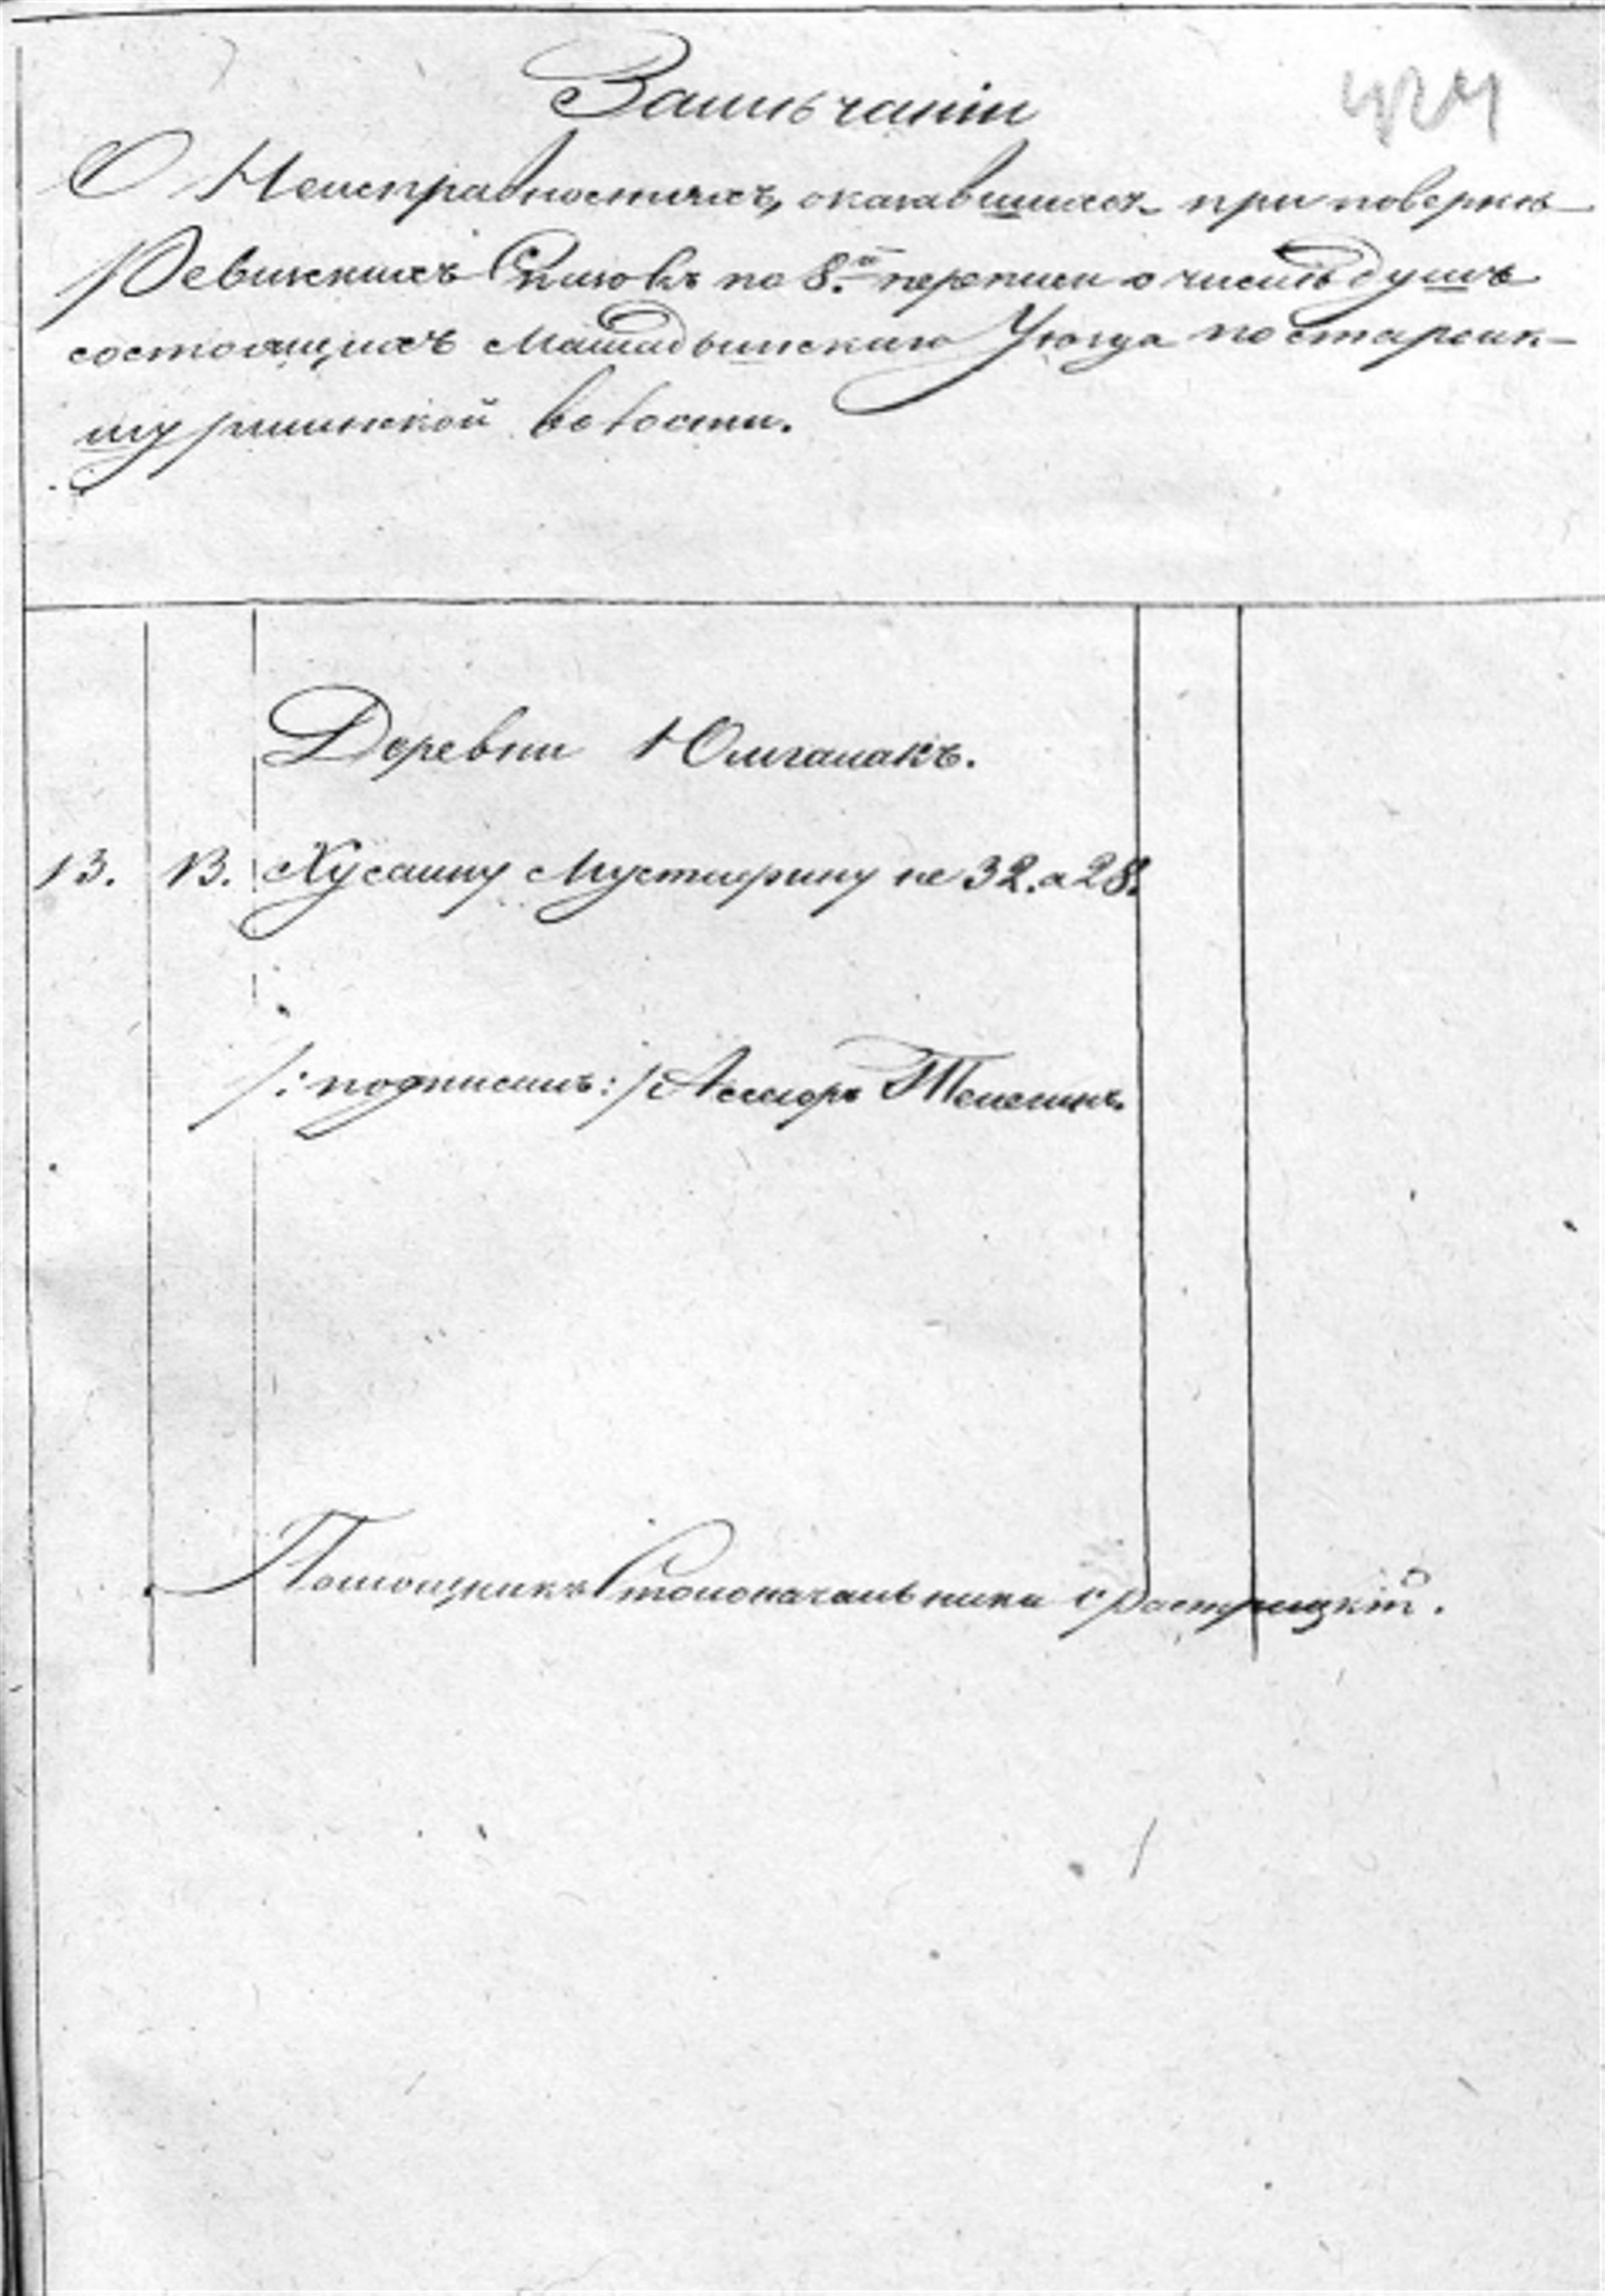 Замѣчаніи
424
О Неисправностяхъ, оказавшихся при поверкѣ
Ревизскихъ Списковъ по 8.й переписи о числѣ душъ
состоящихъ Мамадышскаго Уѣзда по старсик-
шурминской волости.
Деревни Юлгамакъ.
13. 13. Хусаину Мустафину не 32. а 28.
/: подписалъ :/ Асессоръ
Помощникъ Столоначальника